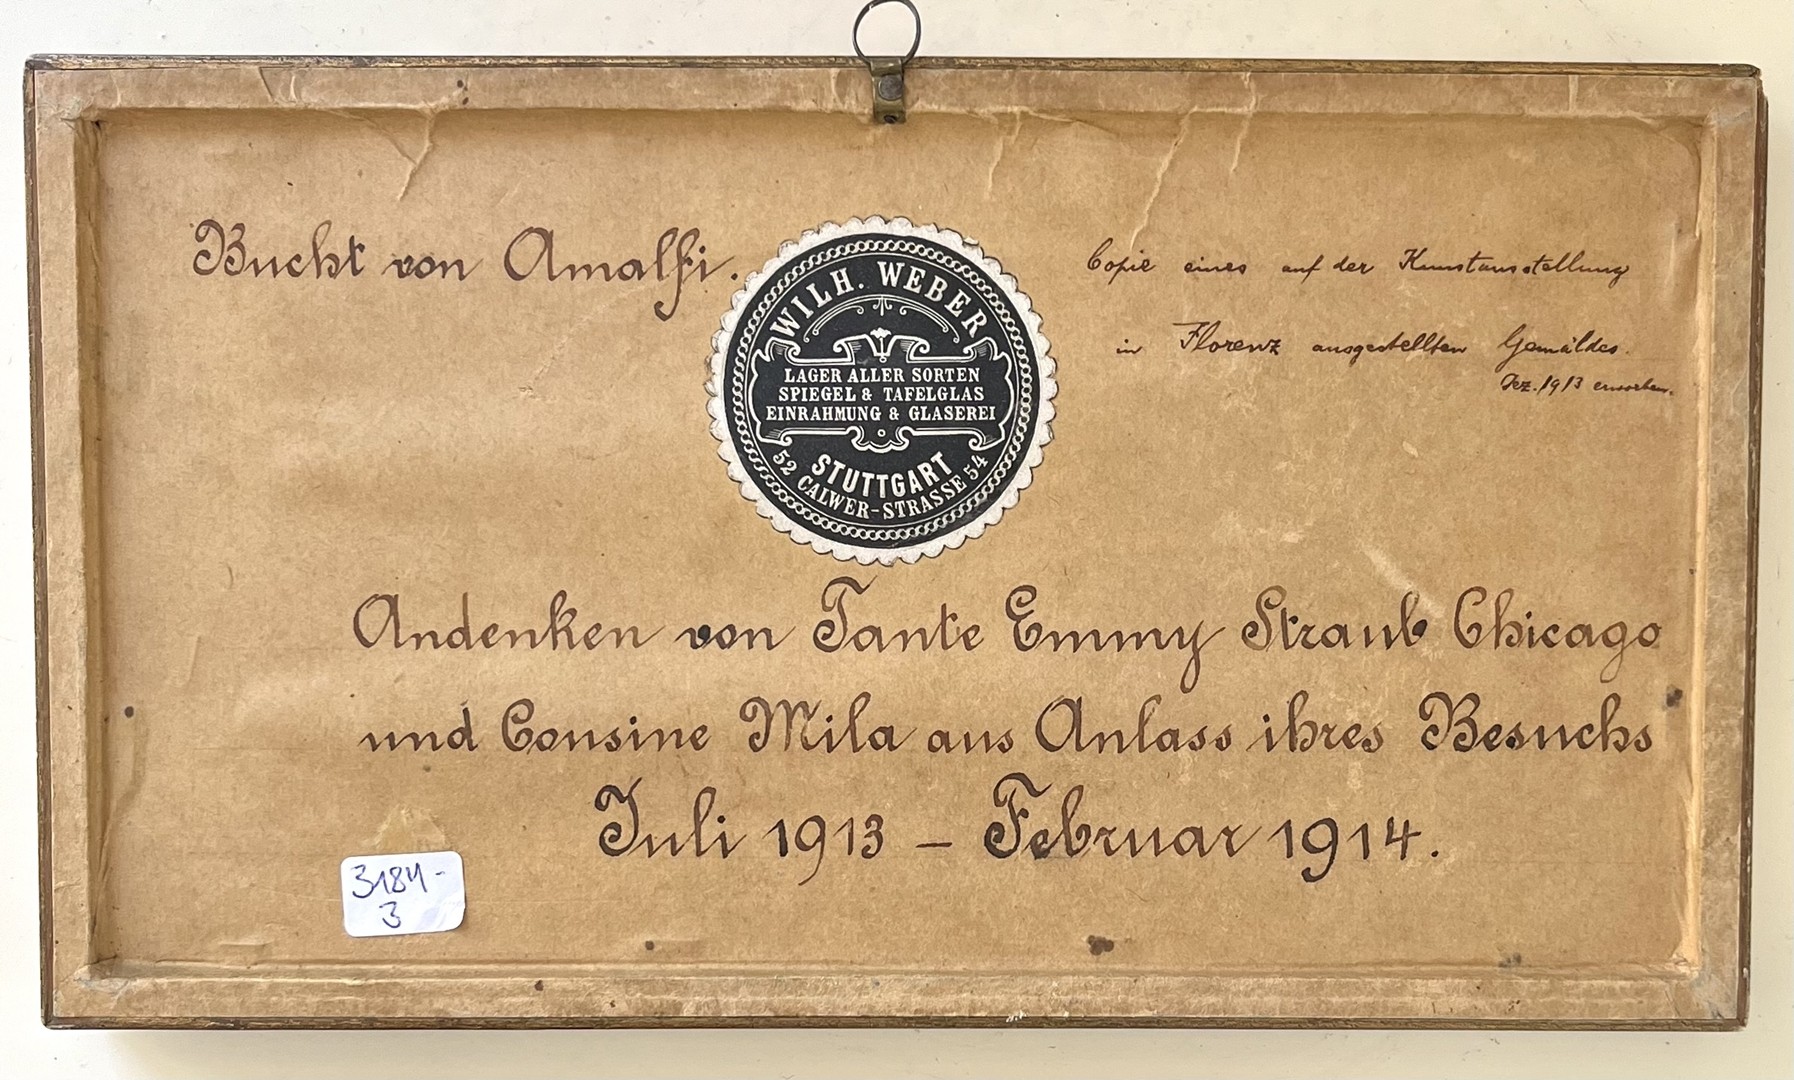 Bucht von Amalfi.
WILH. WEBER
LAGER ALLER SORTEN
SPIEGEL & TAFELGLAS
EINRAHMUNG & GLASEREI
STUTTGART
52 CALWER-STRASSE 54
Copie eines auf der Kunstausstellung
in Florenz ausgestellten Gemäldes.
Dez. 1913 erworben.
Andenken von Tante Emmy Straub Chicago
und Cousine Mila aus Anlass ihres Besuchs
Juli 1913 – Februar 1914.
3184-
3